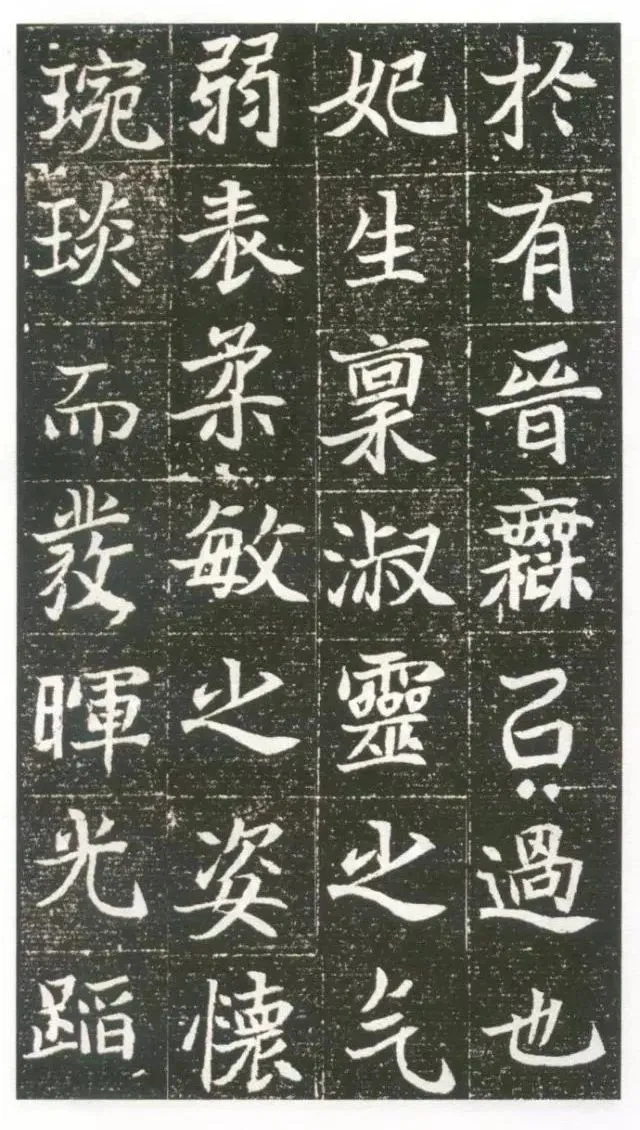 於有晉橆㠯過也
妃生稟淑靈之气
弱表柔敏之姿懷
琬琰而發暉光蹈